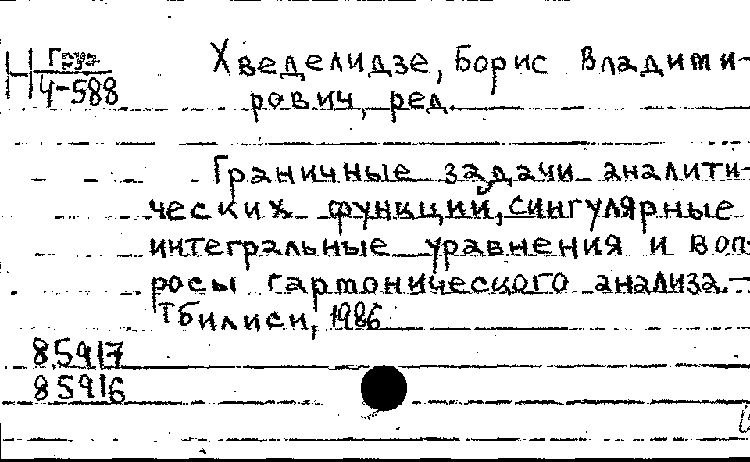 Н
4-588
Хведелидзе, Борис Владими-
рович, ред.
Граничные задачи аналити-
ческих функций, сингулярные
интегральные уравнения и воп-
росы гармонического анализа.-
Тбилиси, 1986
85917
85916